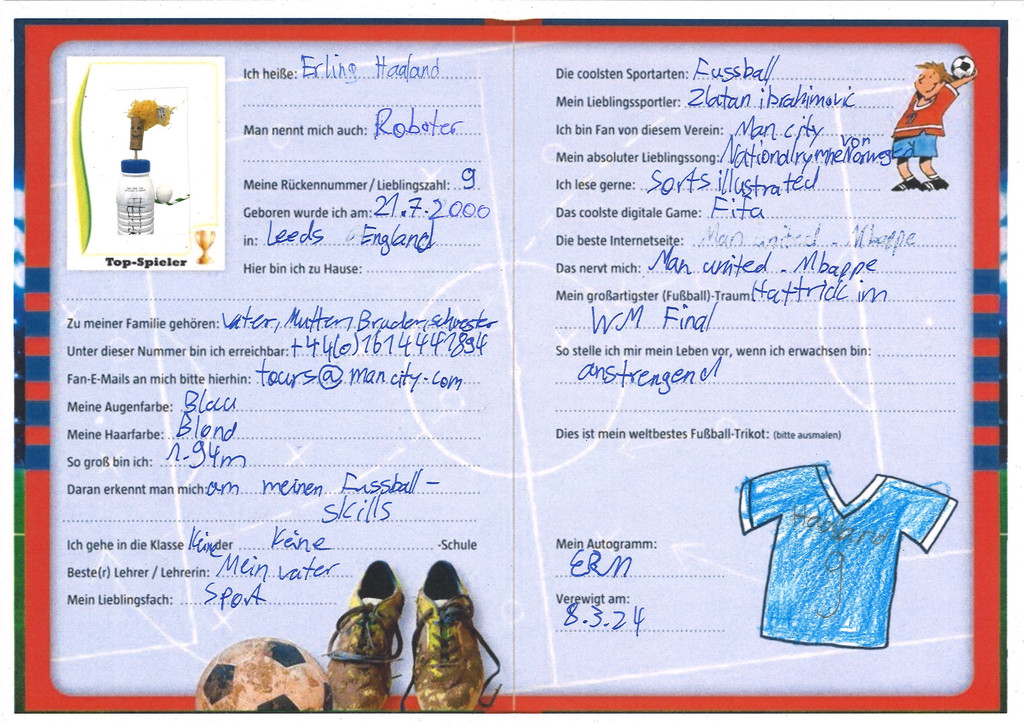 Ich heiße: Erling Haaland
Man nennt mich auch: Roboter
Meine Rückennummer / Lieblingszahl: 9
Geboren wurde ich am: 21.7.2000
in: Leeds England
Hier bin ich zu Hause:
Top-Spieler
Zu meiner Familie gehören: Vater, Mutter, Bruder, schwester
Unter dieser Nummer bin ich erreichbar: +44(0)1614441894
Fan-E-Mails an mich bitte hierhin: tours@mancity.com
Meine Augenfarbe: Blau
Meine Haarfarbe: Blond
So groß bin ich: 1.94m
Daran erkennt man mich: am meinen Fussball-
skills
Ich gehe in die Klasse Keine der Keine -Schule
Beste(r) Lehrer / Lehrerin: Mein vater
Mein Lieblingsfach: Sport
Die coolsten Sportarten: Fussball
Mein Lieblingssportler: Zlatan ibrahimovic
Ich bin Fan von diesem Verein: Man city
Mein absoluter Lieblingssong: Nationalhymne von Norwegen
Ich lese gerne: Sorts illustrated
Das coolste digitale Game: Fifa
Die beste Internetseite: Man united - Mbappe
Das nervt mich: Man united - Mbappe
Mein großartigster (Fußball)-Traum: Hattrick im
WM Final
So stelle ich mir mein Leben vor, wenn ich erwachsen bin:
anstrengend
Dies ist mein weltbestes Fußball-Trikot: (bitte ausmalen)
Haaland
9
Mein Autogramm:
Verewigt am:
8.3.24